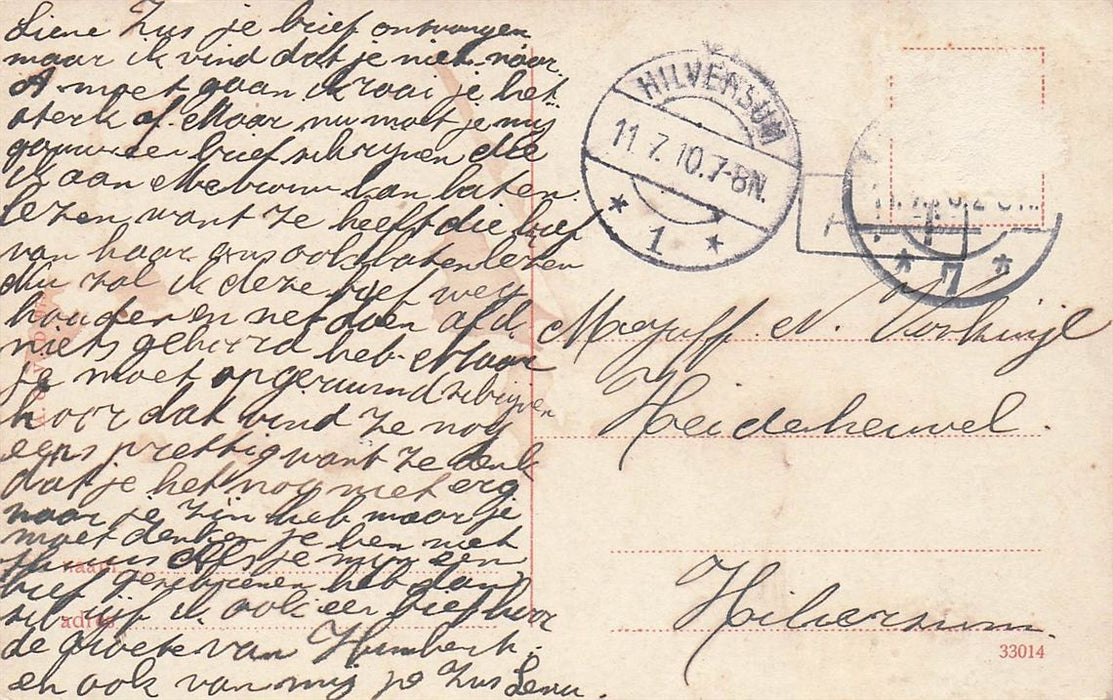 Lieve Zus je brief ontvangen
maar ik vind dat je niet naar
A moet gaan ik raai je het
sterk af. Maar nu moet je mij
gauw een brief schrijven die
ik aan Mevrouw kan laten
lezen, want ze heeft die brief
van haar ons ook laten lezen
Nu zal ik deze brief weg
houden en net doen of d.
niets gehoord heb. Maar
je moet opgeruimd schrijven
hoor dat vind ze nog
eens prettig want ze denk
dat je het nog niet erg
naar je zin heb maar je
moet denken je ben niet
thuis als je mijn een
brief geschreven heb dan
schrijf ik ook een brief hoor
de groete van Humbert.
en ook van mij je Zus Lena.
naam
adres
HILVERSUM
11.7.10.7-8N.
1
7
Mejuff. N. Verkuijl
Heideheuvel.
Hilversum.
33014